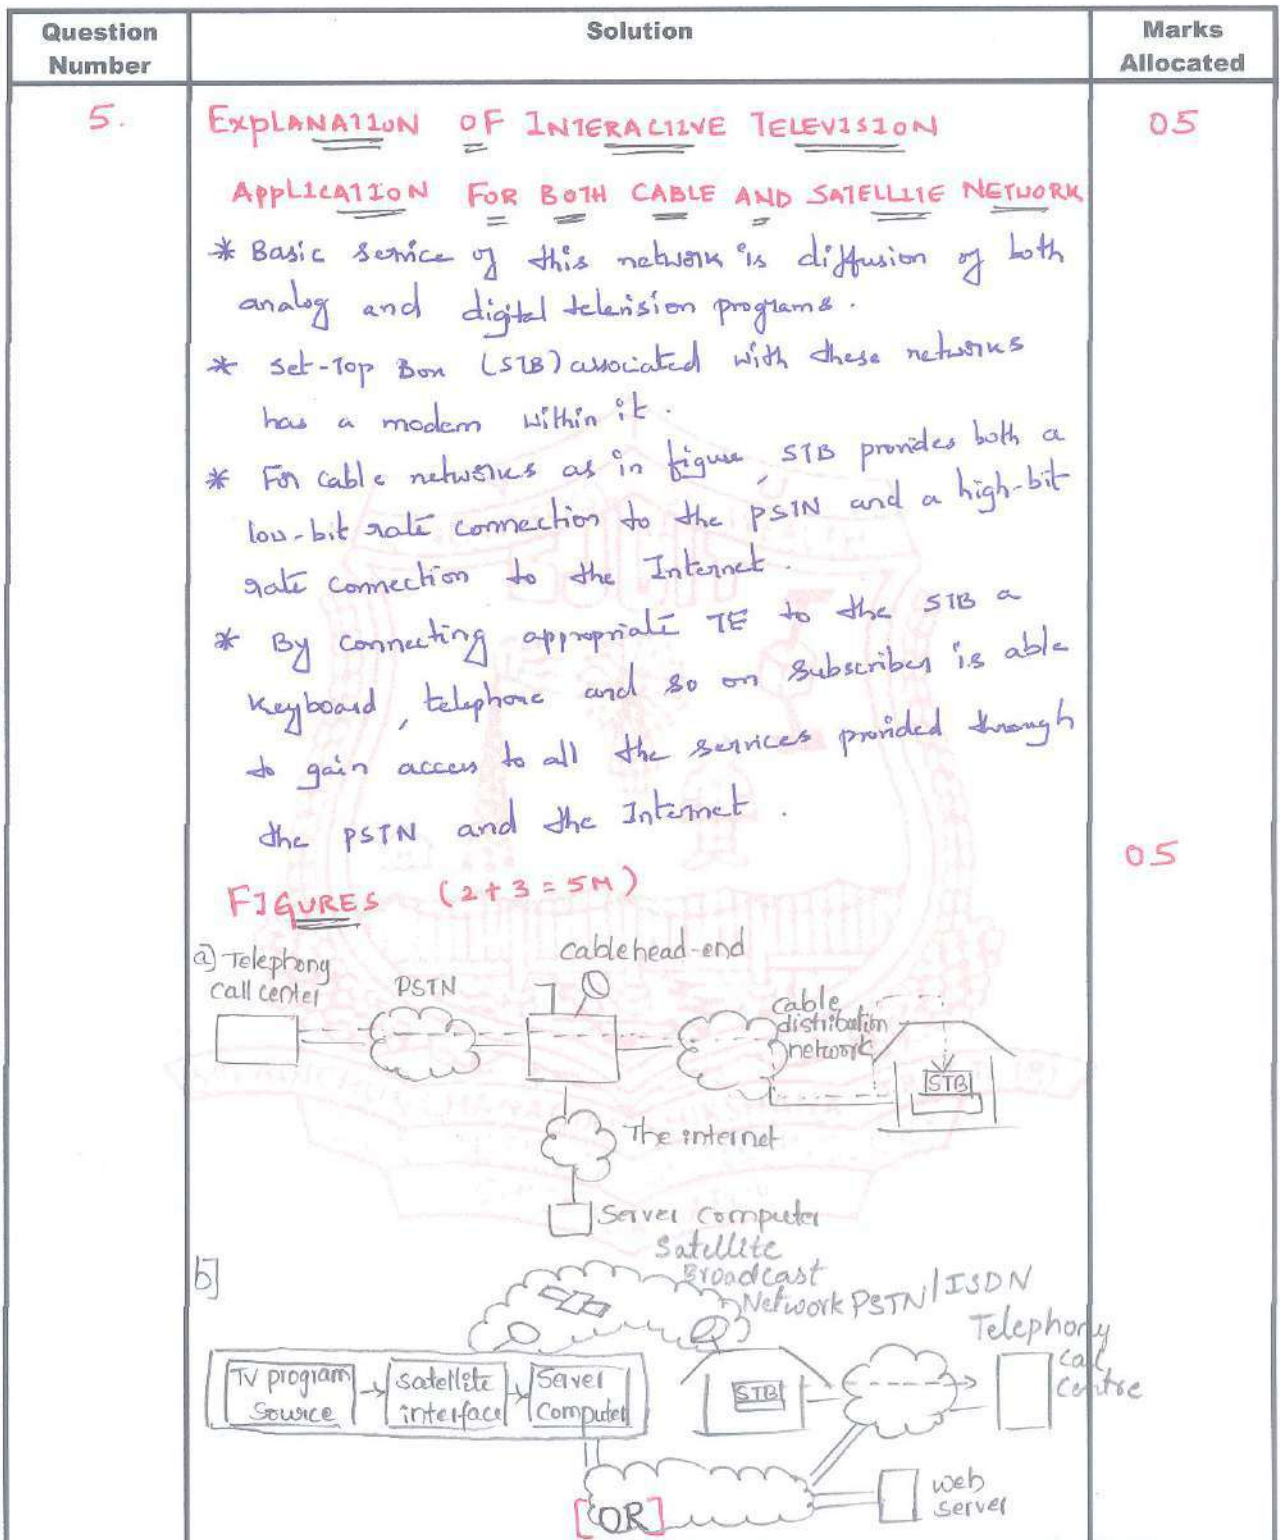 Question Number
Solution
Marks Allocated
5.
EXPLANATION OF INTERACTIVE TELEVISION
05
APPLICATION FOR BOTH CABLE AND SATELLITE NETWORK
* Basic service of this network is diffusion of both
analog and digital television programs.
* Set-Top Box (STB) associated with these networks
has a modem within it.
* For cable networks as in figure, STB provides both a
low-bit rate connection to the PSTN and a high-bit
rate connection to the Internet.
* By connecting appropriate TE to the STB a
keyboard, telephone and so on subscriber is able
to gain access to all the services provided through
the PSTN and the Internet.
05
FIGURES (2+3=5M)
a) Telephony
call center
PSTN
cablehead-end
cable
distribution
network
STB
The internet
Server computer
b]
Satellite
Broadcast
Network
PSTN/ISDN
Telephony
call
centre
TV program
source
satellite
interface
Server
computer
STB
web
server
[OR]